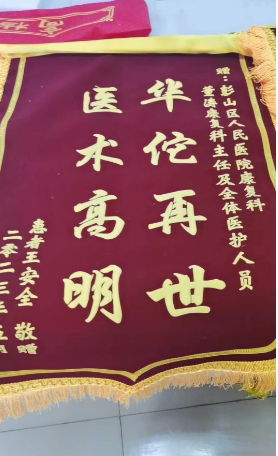 赠：彭山区人民医院康复科
董涛康复科主任及全体医护人员
华佗再世
医术高明
患者王安全 敬赠
二零二三